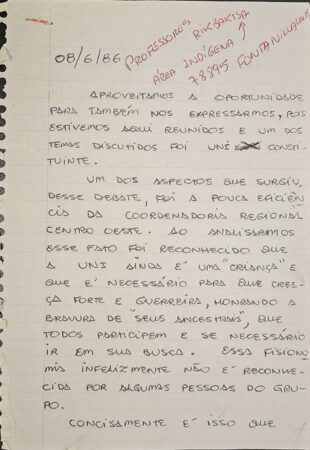 08/6/86
PROFESSORES RIKBAKTSA
ÁREA INDÍGENA
78895 FONTANILLAS/MT
APROVEITAMOS A OPORTUNIDADE
PARA TAMBÉM NOS EXPRESSARMOS, POIS
ESTIVEMOS AQUI REUNIDOS E UM DOS
TEMAS DISCUTIDOS FOI UNI CONSTI-
TUINTE.
UM DOS ASPECTOS QUE SURGIU,
DESSE DEBATE, FOI A POUCA EFICIÊN
CIA DA COORDENADORIA REGIONAL
CENTRO OESTE. AO ANALISARMOS
ESSE FATO FOI RECONHECIDO QUE
A UNI AINDA É UMA "CRIANÇA" E
QUE É NECESSÁRIO PARA QUE CRES-
ÇA FORTE E GUERREIRA, HONRANDO A
BRAVURA DE "SEUS ANCESTRAIS", QUE
TODOS PARTICIPEM E SE NECESSÁRIO
IR EM SUA BUSCA. ESSA FISIONO
MIA INFELIZMENTE NÃO É RECONHE-
CIDA POR ALGUMAS PESSOAS DO GRU-
PO.
CONCISAMENTE É ISSO QUE